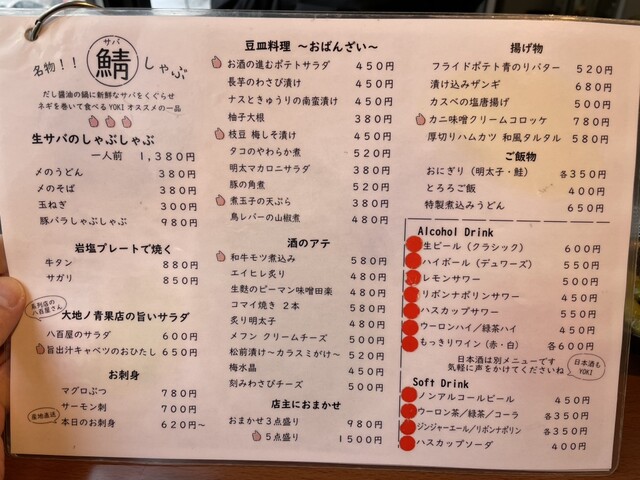 名物！！
サバ
鯖
しゃぶ
だし醤油の鍋に新鮮なサバをくぐらせ
ネギを巻いて食べるYOKIオススメの一品
生サバのしゃぶしゃぶ
一人前 1,380円
〆のうどん 380円
〆のそば 380円
玉ねぎ 300円
豚バラしゃぶしゃぶ 980円
岩塩プレートで焼く
牛タン 880円
サガリ 850円
系列店の
八百屋さん
大地ノ青果店の旨いサラダ
八百屋のサラダ 600円
旨出汁キャベツのおひたし 650円
お刺身
マグロぶつ 780円
サーモン刺 700円
産地直送
本日のお刺身 620円～
豆皿料理 ～おばんざい～
お酒の進むポテトサラダ 450円
長芋のわさび漬け 450円
ナスときゅうりの南蛮漬け 450円
柚子大根 380円
枝豆 梅しそ漬け 450円
タコのやわらか煮 520円
明太マカロニサラダ 380円
豚の角煮 520円
煮玉子の天ぷら 380円
鳥レバーの山椒煮 480円
酒のアテ
和牛モツ煮込み 580円
エイヒレ炙り 480円
生麩のピーマン味噌田楽 480円
コマイ焼き 2本 580円
炙り明太子 480円
メフン クリームチーズ 500円
松前漬け～カラスミがけ～ 520円
梅水晶 450円
刻みわさびチーズ 500円
店主におまかせ
おまかせ3点盛り 980円
5点盛り 1500円
揚げ物
フライドポテト青のりバター 520円
漬け込みザンギ 680円
カスベの塩唐揚げ 500円
カニ味噌クリームコロッケ 780円
厚切りハムカツ 和風タルタル 580円
ご飯物
おにぎり（明太子・鮭） 各350円
とろろご飯 400円
特製煮込みうどん 650円
Alcohol Drink
生ビール（クラシック） 600円
ハイボール（デュワーズ） 550円
レモンサワー 500円
リボンナポリンサワー 450円
ハスカップサワー 550円
ウーロンハイ／緑茶ハイ 450円
もっきりワイン（赤・白） 各600円
日本酒は別メニューです
気軽に声をかけてくださいね
日本酒も
YOKI
Soft Drink
ノンアルコールビール 450円
ウーロン茶／緑茶／コーラ 各350円
ジンジャーエール／リボンナポリン 各350円
ハスカップソーダ 400円